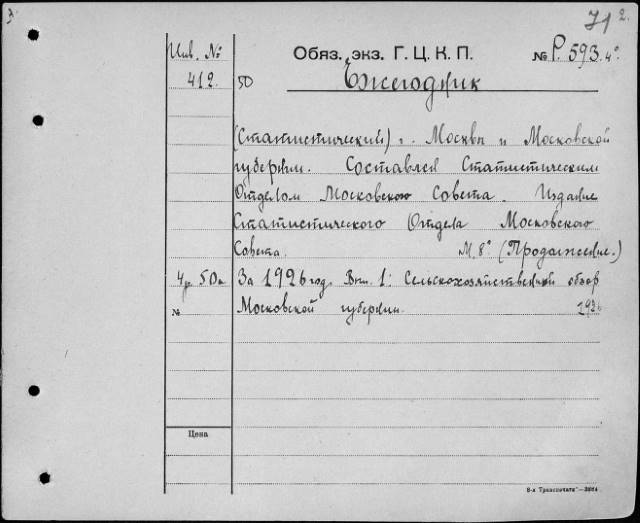 3.
71 2.
Инв. №
Обяз. экз. Г. Ц. К. П. № Р. 593. 4°
412. 50 Ежегодник
(Статистический) г. Москвы и Московской
губернии. Составлен Статистическим
Отделом Московского Совета. Издание
Статистического Отдела Московского
Совета. М. 8° (Продолжение.)
4 р. 50 к За 1926 год. Вып. 1: Сельскохозяйственный обзор
№ Московской губернии.
Цена